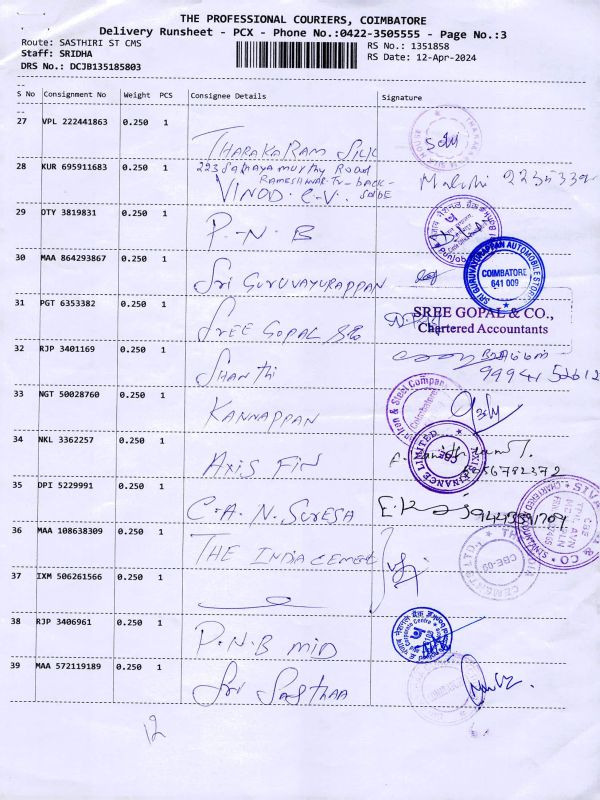 THE PROFESSIONAL COURIERS, COIMBATORE
Delivery Runsheet - PCX - Phone No.:0422-3505555 - Page No.:3
Route: SASTHIRI ST CMS
RS No.: 1351858
Staff: SRIDHA
RS Date: 12-Apr-2024
DRS No.: DCJB135185803
S No Consignment No Weight PCS Consignee Details Signature
27 VPL 222441863 0.250 1
THARAKARAM SILK
28 KUR 695911683 0.250 1
223 Sathyamurthy Road
RAMESHWAR
VINOD. C.V.
29 OTY 3819831 0.250 1
P.N.B
30 MAA 864293867 0.250 1
Sri GURUVAYURAPPAN
SRI GURUVAYURAPPAN AUTOMOBILE STORE
COIMBATORE
641 009
31 PGT 6353382 0.250 1
SREE GOPAL &Co
SREE GOPAL & CO.,
Chartered Accountants
32 RJP 3401169 0.250 1
SHANThi
33 NGT 50028760 0.250 1
KANNAPPAN
Iron & Steel Company
Coimbatore
34 NKL 3362257 0.250 1
AXIS FIN
AXIS FINANCE LIMITED
35 DPI 5229991 0.250 1
C.A. N. SURESA
36 MAA 108638309 0.250 1
THE INDIA CEMENT
CBE-09
37 IXM 506261566 0.250 1
38 RJP 3406961 0.250 1
P.N.B MID
39 MAA 572119189 0.250 1
Sri SASTHAA
12